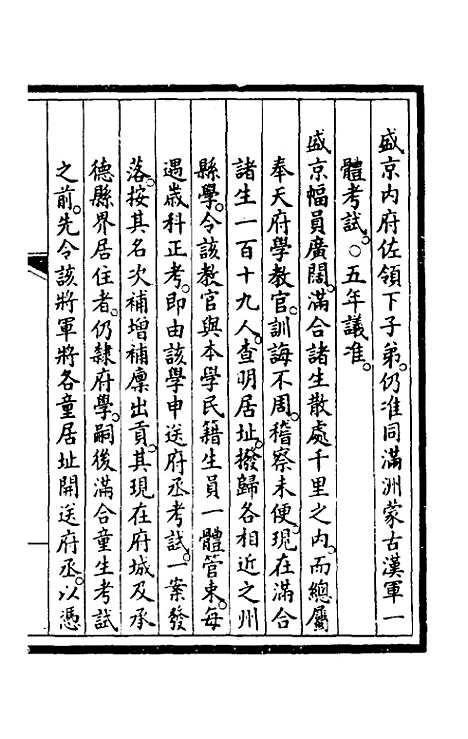 盛京內府佐領下子弟。仍准同滿洲蒙古漢軍一
體考試。○五年議准。
盛京幅員廣闊。滿合諸生散處千里之內。而總屬
奉天府學教官。訓誨不周。稽察未便。現在滿合
諸生一百十九人。查明居址。撥歸各相近之州
縣學。令該教官與本學民籍生員一體管束。每
遇歲科正考。即由該學申送府丞考試。一案發
落。按其名次補增補廩出貢。其現在府城及承
德縣界居住者。仍隸府學。嗣後滿合童生考試
之前。先令該將軍將各童居址開送府丞。以憑